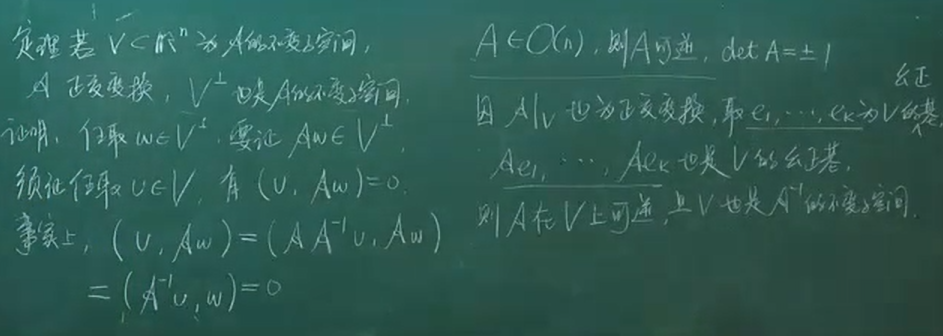 定理 若 V⊂ℝⁿ为 A的不变子空间,
A 正交变换, V^⊥ 也是A的不变子空间.
证明. 任取 w∈V^⊥. 要证 Aw∈V^⊥,
须证任取 υ∈V, 有 (υ, Aw)=0.
事实上, (υ, Aw)=(AA⁻¹υ, Aw)
=(A⁻¹υ, w)=0
A∈O(n), 则A可逆, det A=±1
因 A|_V 也为正交变换, 取 e₁, …, e_k 为V的幺正基
Ae₁, …, Ae_k 也是 V 的幺正基.
则A在V上可逆, 且V也是A⁻¹的不变子空间.